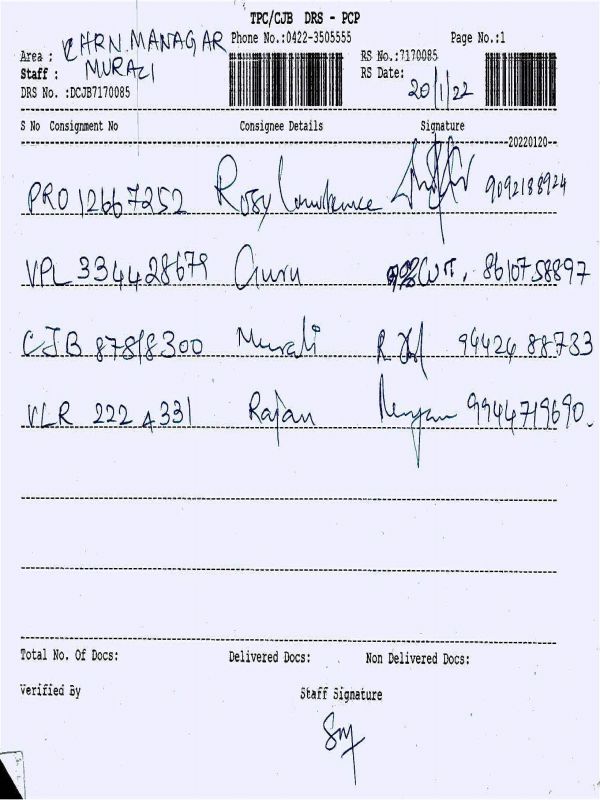 TPC/CJB DRS - PCP
Phone No.:0422-3505555 Page No.:1
Area : MANAGAR
Staff : MURALI
DRS No. :DCJB7170085
RS No.:7170085
RS Date: 20/1/22
S No Consignment No Consignee Details Signature
20220120
PRO 12667252 Rosy 9092188924
VPL 334428679 Guru 8610758897
CJB 87818300 Murali 94424 88783
VLR 222 4331 Rajan 9944719690.
Total No. Of Docs: Delivered Docs: Non Delivered Docs:
Verified By Staff Signature